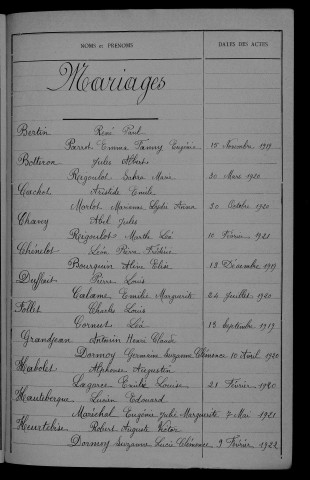 NOMS et PRÉNOMS DATES DES ACTES
Mariages
Bertin René Paul
Parrot Emma Fanny Eugénie 15 Novembre 1919
Botteron Jules Albert
Regulet Marie 30 Mars 1920
Cachot Aristide Emile
Morlot Marianne Lydie 30 Octobre 1920
Charcy Abel Jules
Regulet Marthe Léa 10 Février 1921
Chénelot Léon Pierre Frédéric
Bourquin Aline Elise 13 Décembre 1919
Duffait Pierre Louis
Calame Emilie Marguerite 24 Juillet 1920
Follet Charles Louis
Cornut Léa 13 Septembre 1919
Grandjean Antonin Henri Claude
Dornoy Germaine Suzanne Clémence 10 Avril 1920
Mabolet Alphonse Augustin
Lagarce Emilie Louise 21 Février 1920
Hautebergue Lucien Edouard
Maréchal Eugénie Julie Marguerite 7 Mai 1921
Heurtebise Robert Auguste Victor
Dornoy Suzanne Lucie Clémence 9 Février 1922